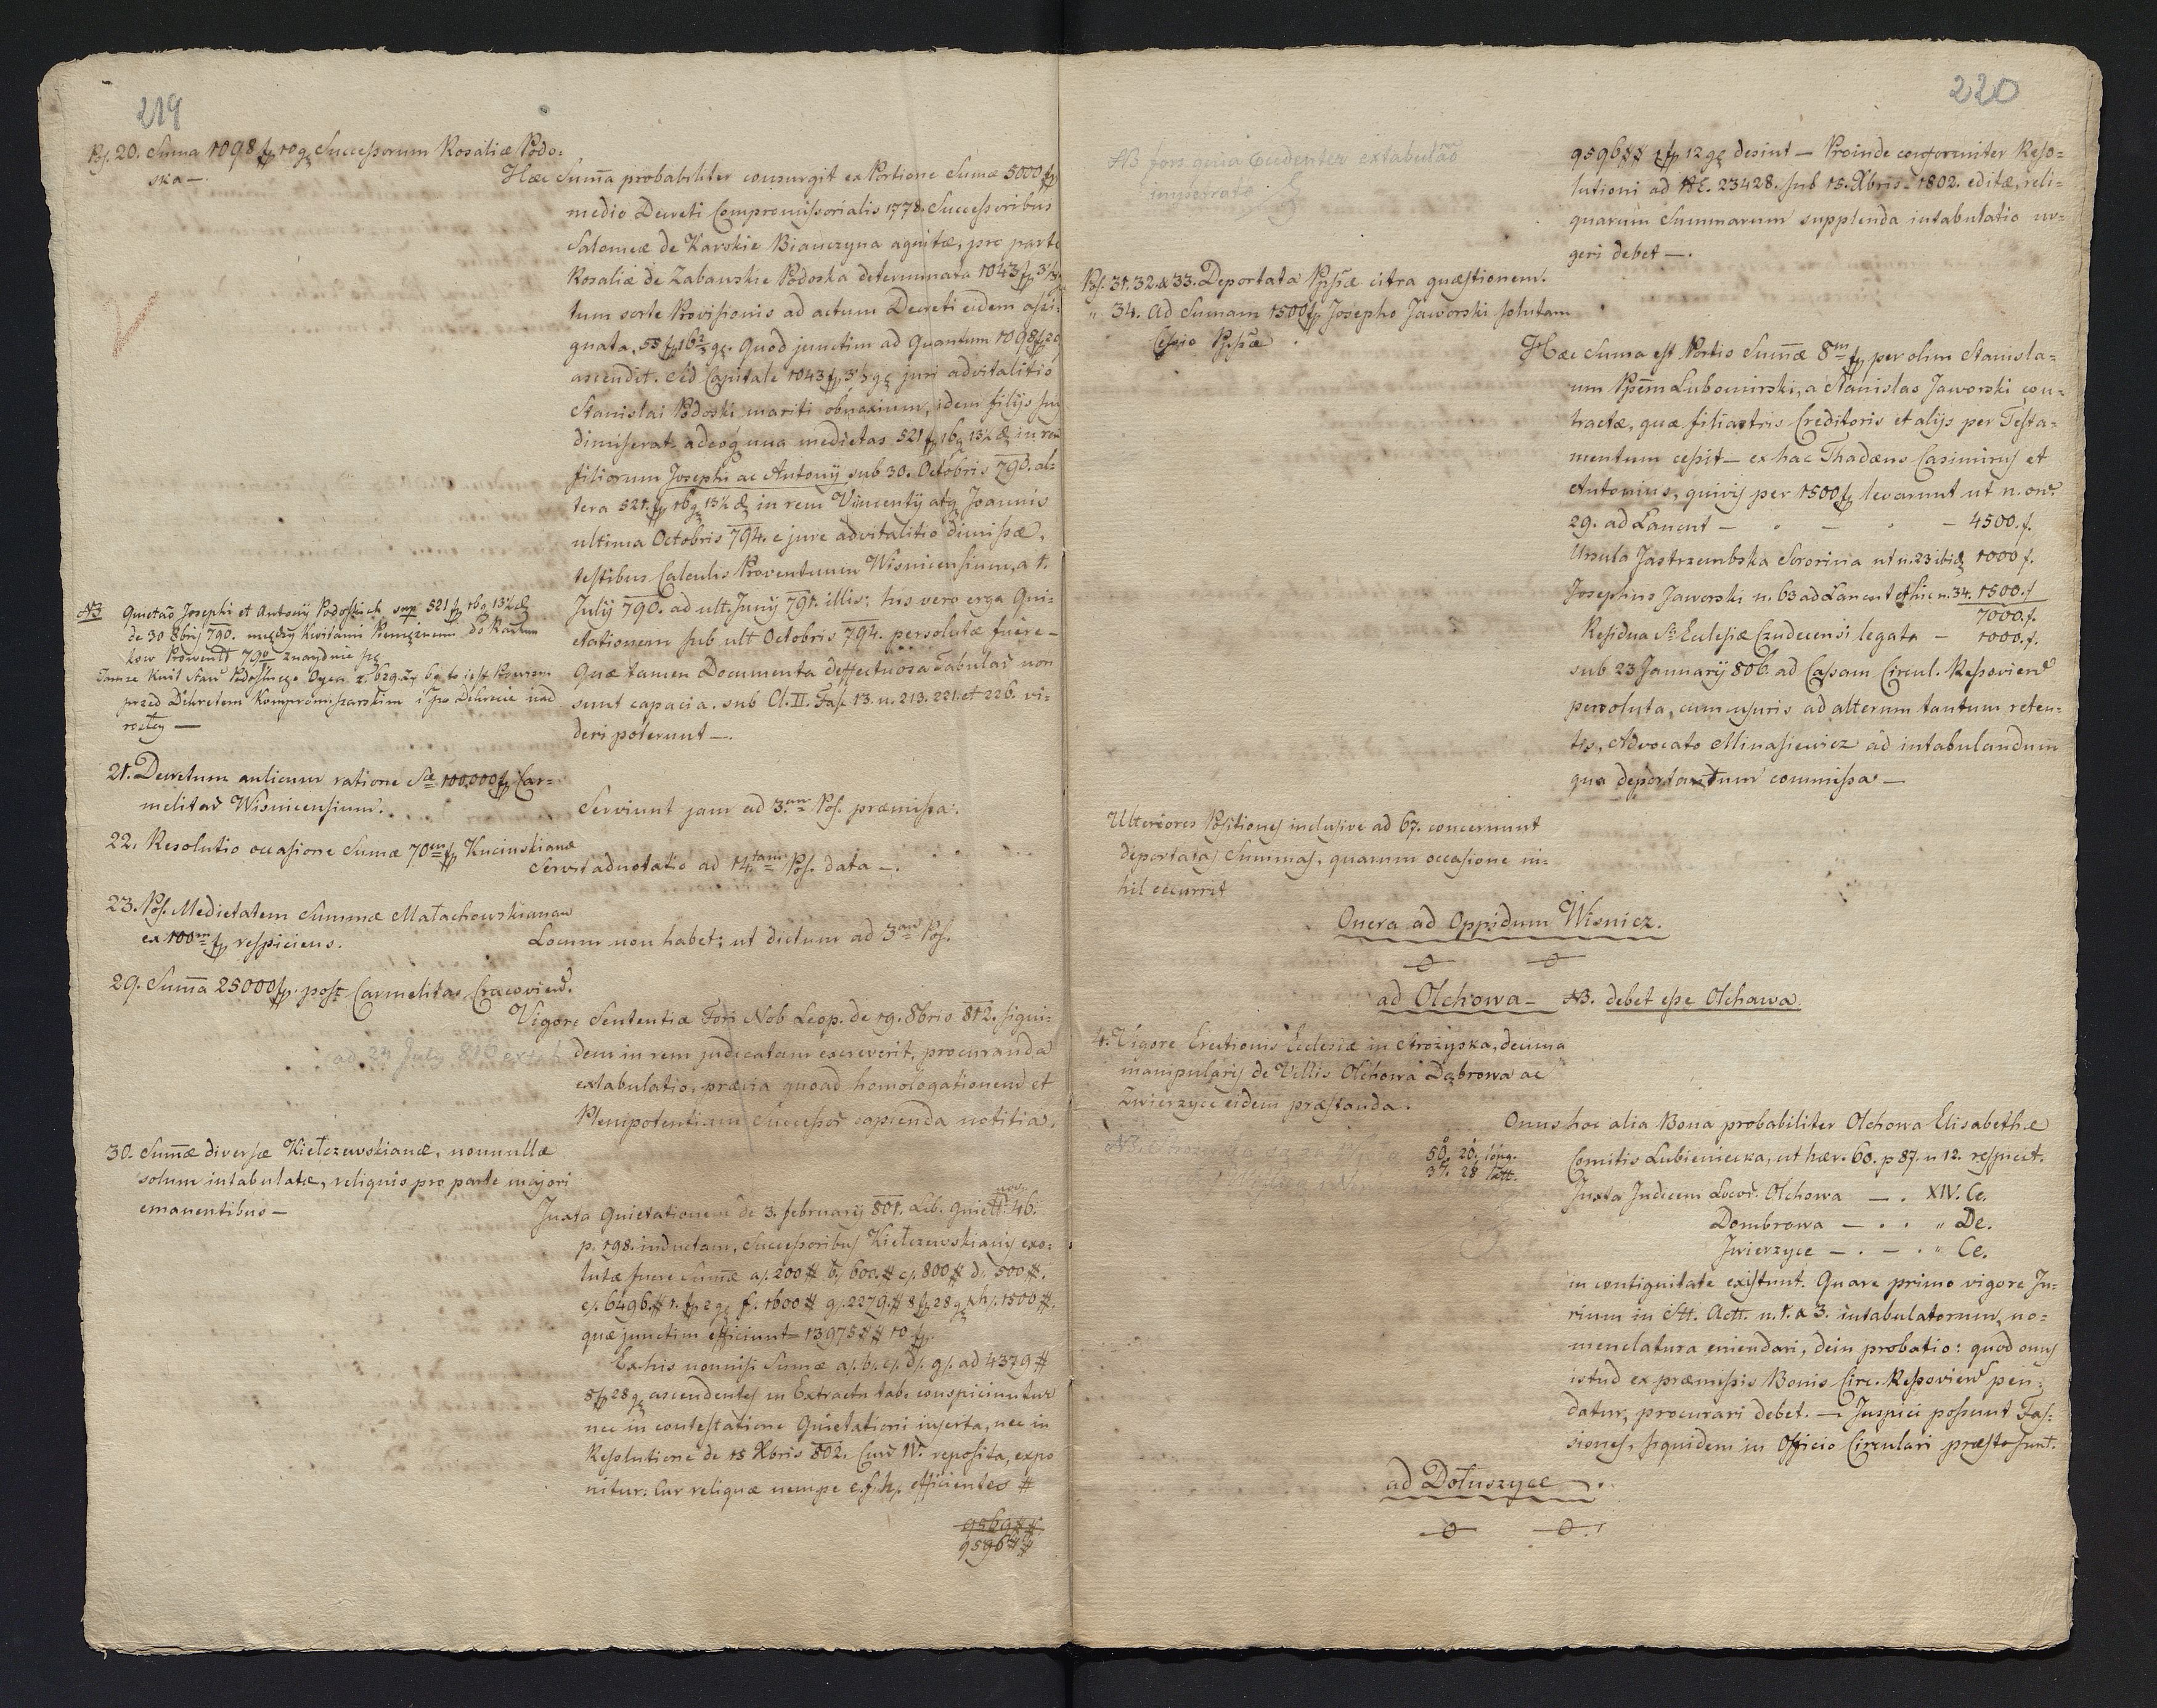 219
Ps. 20. Suma 1098 fp 10 gę Successorum Rosaliæ Podo=
ska —
Hæc Suma probabiliter consurgit ex Portione Sumæ 5000 fp
medio Decreti Compromissorialis 1778. Successoribus
Salomeæ de Karskie Bianczyna agnitæ, pro parte
Rosaliæ de Zabauskie Podoska determinata 1043 fp 3⅓ gę
tum sorte Provisionis ad actum Decreti eidem assi=
gnata, 55 fp 16⅔ gę. Quod junctim ad quantum 1098 fp 20
ascendit. Sed Capitale 1043 fp 3⅓ gę juri advitalitio
Stanislai Podoski mariti obnoxium, idem filijs suis
dimiserat, adeoq una medietas 521 fp 16 gę 13½ d in rem
filiorum Josephi ac Antonij sub 30. Octobris 790. al=
tera 521. fp 16 gę 13½ d in rem Vincentij atq Joannis
ultima Octobris 794. e jure advitalitio dimissæ,
testibus Calculis Proventuum Wisnicensium, a 1.
July 790. ad ult. Juny 791. illis; his vero erga Qui=
etationem sub ult Octobris 794. persolutæ fuere —
Quæ tamen Documenta deffectuosa Tabular non
sunt capacia. sub Cl. II. Fas. 13. n. 213. 221. et 226. vi=
deri poterunt —.
NB Quietao Josephi et Antonij Podoskich sup 521 fp 16 g 13½ d
de 30 8bris 790. między Kwitami Pieniężnemi do Rachun
kow Prowent 790 znayduie się
Tamze Kwit Stan Podoskiego Oyca z. 629. Zł 6 g to iest Prowizii
przed Dekretem Kompromissarskim i po Dekrecie nad
rosłey —
21. Decretum aulicum ratione Sæ 100,000 fp Car=
melitar Wisnicensium.
Serviunt jam ad 3am Pos. præmissa.
22. Resolutio occasione Sumæ 70m fp Kucinskianæ
Servit adnotatio ad 14tam Pos. data —.
23. Pos. Medietatem Summæ Małachowskianæ
ex 100m fp respiciens.
Locum non habet; ut dictum ad 3am Pos.
29. Suma 25000 fp. post Carmelitas Cracovien.
Vigore Sententiæ Fori Nob Leop. de 19. 8bris 812. siqui=
dem in rem judicatam excreverit, procuranda
extabulatio, prævia quoad homologationem et
Plenipotentiam Successor capienda notitia.
ad 24 July 816 extab
30. Sumæ diversæ Kiełczewskianæ, nonnullæ
solum intabulatæ, reliquis pro parte majori
emanentibus —
Juxta Quietationem de 3. february 801. Lib. Quiett. nov. 46.
p. 198. inductam, Successoribus Kiełczewskianis exo=
lutæ fuere Sumæ a/. 200 # b/. 600. # c/. 800 # d/. 500 #.
e/. 6496. # 1. fp 2 gę f. 1600 # g/. 2279. # 8 fp 28 gę h/. 1500 #.
quæ junctim efficiunt 13975 ## 10 fp.
Ex his nonnisi Sumæ a/. b/. c/. d/. g/. ad 4379 #
8 fp 28 gę ascendentes in Extractu tab. conspiciuntur
nec in contestatione Quietationi inserta, nec in
Resolutione de 15 Xbris 802. Cur IV. reposita, expo
nitur: Cur reliquæ nempe e. f. h/. efficientes #
9569 ##
9596 ##
220
NB fors quia evidenter extabulao
imperrata
9596 ## 1 fp 12 gę desint — Proinde conformiter Reso=
lutioni ad NE. 23428. sub 15. Xbris 1802. editæ, reli=
quarum Summarum supplenda intabulatio ur=
geri debet —.
Ps. 31. 32 & 33. Deportata Ppssæ citra quæstionem.
" 34. Ad Sumam 1500 fp. Josepho Jaworski solutam
Cessio Ppssæ.
Hæc Suma est Portio Sumæ 8m fp per olim Stanisla=
um Ppem Lubomirski, a Stanislao Jaworski con=
tractæ, quæ filiastris Creditoris et alijs per Testa=
mentum cessit — ex hac Thadæus Casimirus et
Antonius, quivis per 1500 fp levarunt ut n. on.
29. ad Lancut — . — . — 4500. f.
Ursula Jastrzembska Sororina ut n. 23 ibid 1000 f.
Josephus Jaworski n. 63 ad Lancut et hic n. 34. 1500. f
7000. f.
Residua Sæ Eclesiæ Czudecensi legata — 1000. f.
sub 23 Januarij 806. ad Cassam Circul. Ressovien
persoluta, cum usuris ad alterum tantum reten=
tis, Advocato Minasiewicz ad intabulandum
qua deportandum commissa —
Ulteriores Positiones inclusive ad 67. concernunt
deportatas Summas, quarum occasione ni=
hil occurrit
Onera ad Oppidum Wisnicz.
ad Olchowa — NB. debet esse Olchawa.
4. Vigore Erectionis Ecclesiæ in Strożyska, decima
manipularis de Villis Olchowa Dąbrowa ac
Zwierzyce eidem præstanda.
50°. 20'. long.
37. 28 latt.
Onus hoc alia Bona probabiliter Olchowa Elisabethæ
Comitis Lubieniecka, ut hær. 60. p 87. n 12. respicit.
Juxta Indicem Locor. Olchowa — . XIV. Ce.
Dombrowa — . . " De.
Zwierzyce — . — . " Ce.
in contiguitate existunt. Quare primo vigore Ju=
rium in Stt. Actt. n. 1. a 3. intabulatorum, no=
menclatura emendari, dein probatio: quod onus
istud ex præmissis Bonis Circ. Ressovien pen=
datur, procurari debet. — Inspici possunt Fas=
siones, siquidem in Officio Circulari præsto sunt.
ad Dołuszyce